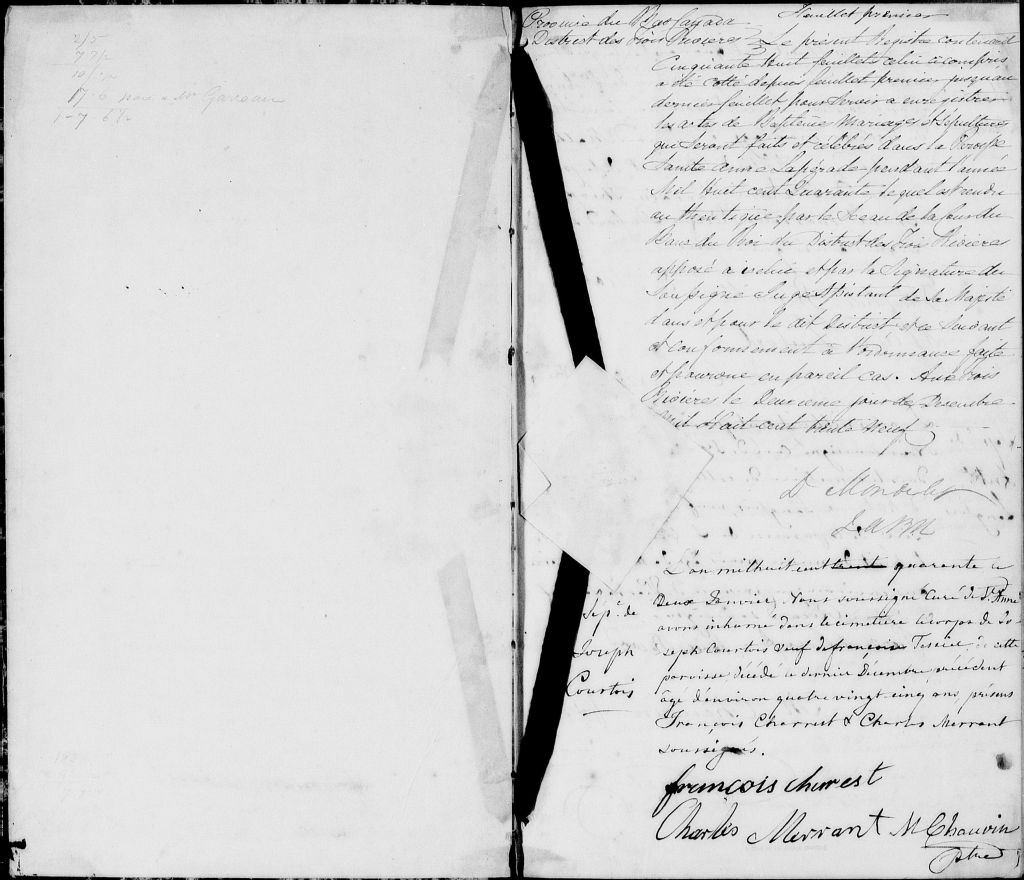 2/5
17-6 pour Mr Garceau
1-7 6½
Province du Bas Canada
Feuillet premier
District des Trois Rivieres
Le présent Registre contenant
Cinquante Huit feuillets celui ci compris
a été cotté depuis feuillet premier jusqu'au
dernier feuillet pour servir a enregistrer
les actes de Baptemes Mariages et Sépultures
qui seront faits et célébrés dans la Paroisse
Sainte Anne Lapérade pendant l'année
Mil Huit cent Quarante, lequel est rendu
authentique par le Sceau de la Cour du
Banc du Roi du District des Trois Rivieres
apposé à icelui et par la Signature du
Soussigné Juge Assistant de Sa Majesté
dans et pour le dit District et ce suivant
et conformement à l'ordonnance faite
et pourvue en pareil cas. Aux Trois
Rivieres le Deuxieme jour de Decembre
mil Huit cent trente Neuf
D Mondelet
J. A B R
Sep.re de
Joseph
Courtois
L'an mil huit cent trente quarante le
Deux Janvier, Nous soussigné Curé de Ste Anne
avons inhumé dans le cimetiere le corps de Jo-
seph Courtois veuf de françoise Tessier de cette
paroisse décédé le dernier Décembre précédent
âgé d'environ quatre vingt-cinq ans, présens
François Charrest & Charles Merrant
soussignés.
françois churest
Charles Merrant M Chauvin
ptre